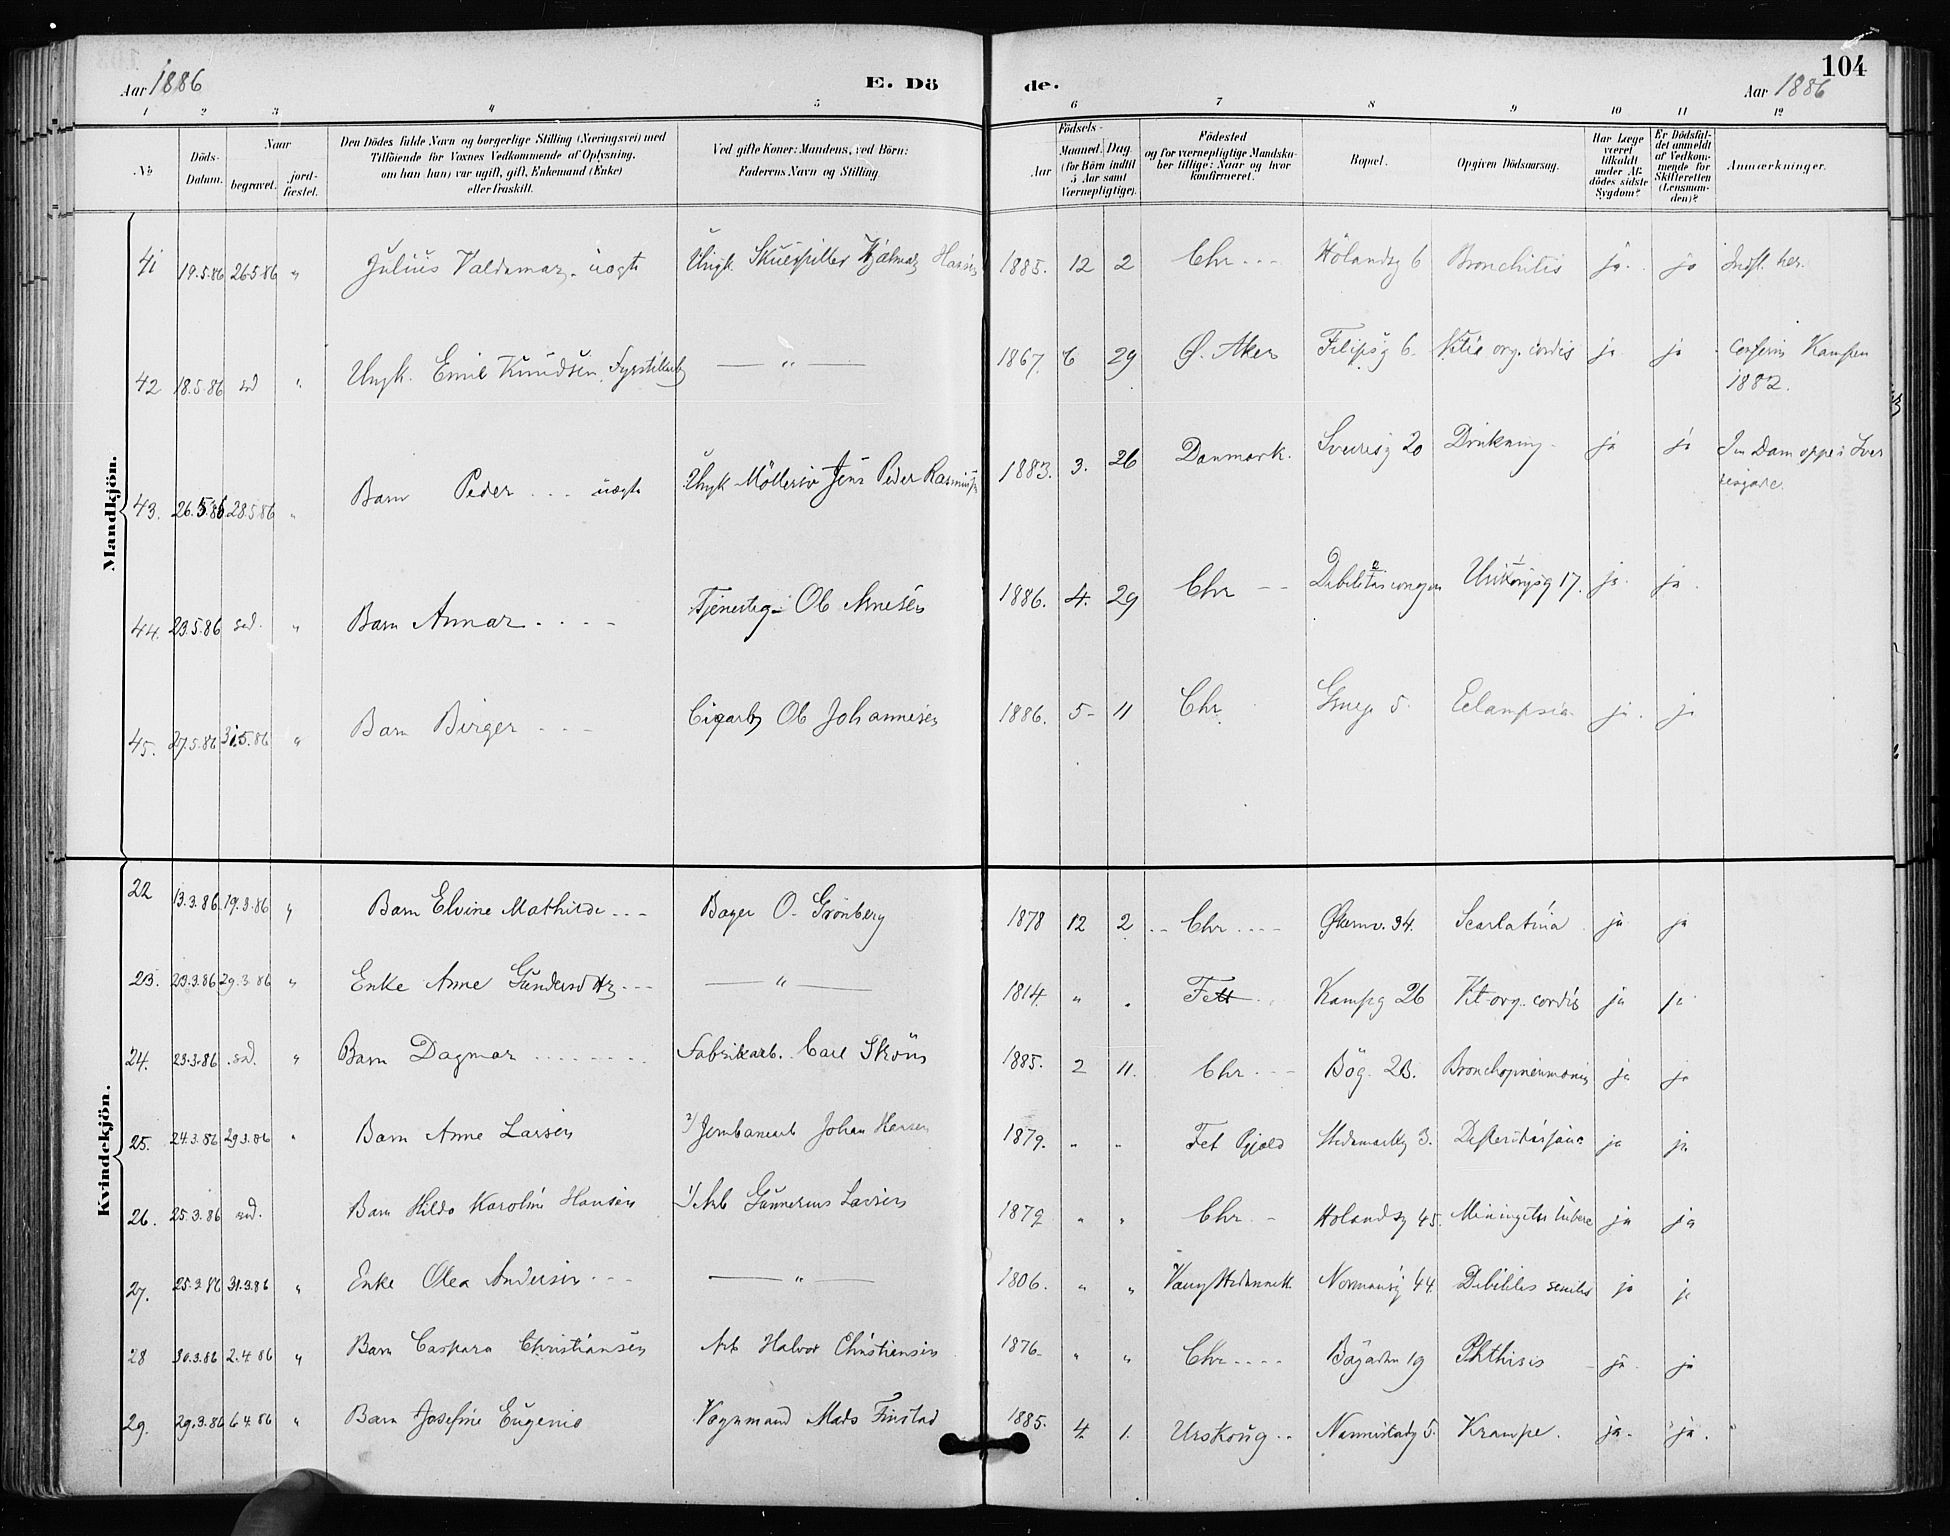 104
Aar 1886 E. Dö de. Aar 1886
1 2 3 4 5 6 7 8 9 10 11 12
No Döds-Datum. Naar begravet. jord-fæstet. Den Dödes fulde Navn og borgerlige Stilling (Næringsvei) med Tilföiende for Voxnes Vedkommende af Oplysning, om han (hun) var ugift, gift, Enkemand (Enke) eller fraskilt. Ved gifte Koner: Mandens, ved Börn: Faderens Navn og Stilling. Födsels- Aar Maaned. Dag (for Börn indtil 5 Aar samt Værnepligtige). Födested og for værnepligtige Mandskaber tillige: Naar og hvor konfirmeret. Bopæl. Opgiven Dödsaarsag. Har Læge været tilkaldt under Afdödes sidste Sygdom? Er Dödsfaldet anmeldt af Vedkommende for Skifteretten (Lensmanden)? Anmærkninger.
Mandkjön.
41 19.5.86 26.5.86 " Julius Valdemar, uægte Ungk. Skuespiller Hjalmar Hansen 1885. 12 2 Chr --- Hölandsg 6 Bronchitis ja. ja Indfl. her.
42 18.5.86 sd " Ungk. Emil Knudsen, Fyrstikarb — " — 1867. 6 29 Ø. Aker Filipsg 6. Vitia org. cordis ja ja Conferm Kampen
1882.
43. 26.5.86 28.5.86 " Barn Peder ... uægte Ungk Möllersv Jens Peder Rasmus 1883. 3. 26 Danmark. Sverresg 20 Drukning ja ja I en Dam oppe i Sver
44. 23.5.86 sd. " Barn Annar .... Tjenesteg Ole Arnesen 1886. 4. 29 Chr -- Debilitas congen 17. ja. ja
45. 27.5.86 31.5.86 " Barn Birger ... Cigarb Ole Johannesen 1886. 5- 11 Chr 5. Eclampsia ja. ja
Kvindekjön.
22 13.3.86 19.3.86 " Barn Elvine Mathilde --- Bager O. Grönberg 1878 12 2 Chr ---- Økernv. 34. Scarlatina ja ja
23. 23.3.86 29.3.86 " Enke Anne Gundersdtr --- — " — 1814. " . Fett Kampg 26 Vit org. cordis ja ja
24. 23.3.86 sd. " Barn Dagmar ........ Fabrikarb. Carl Sköns 1885. 2 11. Chr --- Bög. 2B. Bronchopneumonia ja ja
25. 24.3.86 29.3.86 " Barn Anne Larsen 2/ Jernbanearb Johan Hansen 1879. " " Fet Pgjæld Hedemarksg 3. ja ja
26. 25.3.86 sd. Barn Hilda Karoline Hansen 1/ Arb Gunnerius Larsen 1879 " " Chr - Hölandsg 45. Miningitis tuberc ja ja
27. 25.3.86 31.3.86 " Enke Olea Andersen --- — " — 1806. " " Vang Hedemark. Normansg 44. Debilitas senilis ja ja
28 30.3.86 2.4.86 " Barn Caspara Christiansen Arb Halvor Christiansen 1876. " " Chr ---- Bögaden 19 Phthisis ja. ja
29. 29.3.86 6.4.86 " Barn Josefine Eugenie Vognmand Mads Finstad 1885. 4. 1. Urskoug .. Nannestadg 5. Krampe. ja. ja.